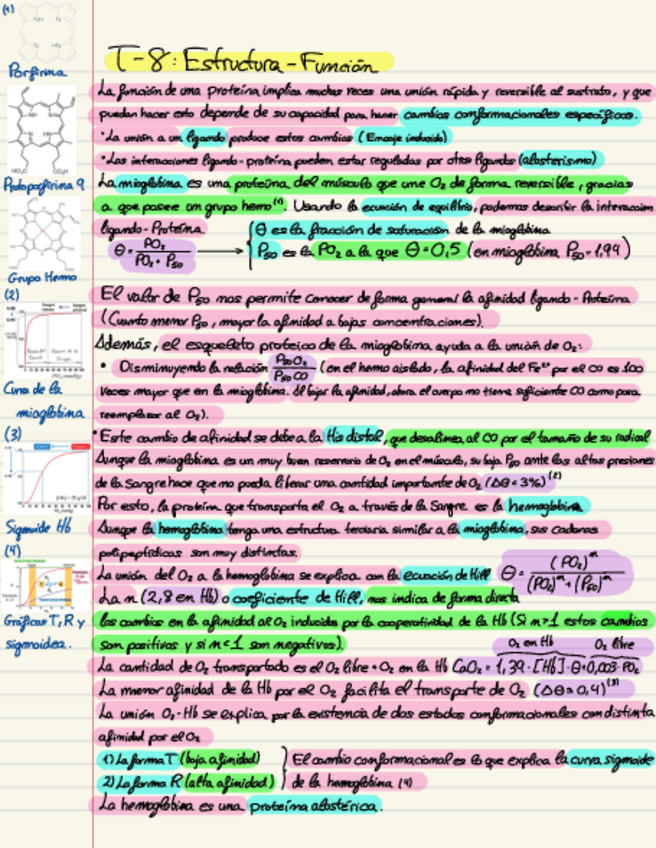 (1)
Porfirina
HO₂C
CO₂H
Protoporfirina 9
Grupo Hemo
(2)
Curva de la
mioglobina
(3)
Sigmoide Hb
(4)
Gráficas T, R y
sigmoidea.
T-8: Estructura-Función
La función de una proteína implica muchas veces una unión rápida y reversible al sustrato, y que
puedan hacer esto depende de su capacidad para hacer cambios conformacionales específicos.
•La unión a un ligando produce estos cambios (Encaje inducido)
•Las interacciones ligando-proteína pueden estar reguladas por otros ligandos (alosterismo)
La mioglobina es una proteína del músculo que une O₂ de forma reversible, gracias
a que posee un grupo hemo⁽¹⁾. Usando la ecuación de equilibrio, podemos describir la interacción
ligando-Proteína.
θ = PO₂ / (PO₂ + P₅₀) → { θ es la fracción de saturación de la mioglobina
P₅₀ es la PO₂ a la que θ=0,5 (en mioglobina P₅₀=1,94)
El valor de P₅₀ nos permite conocer de forma general la afinidad ligando-Proteína
(Cuanto menor P₅₀, mayor la afinidad a bajas concentraciones).
Además, el esqueleto proteico de la mioglobina ayuda a la unión de O₂:
• Disminuyendo la relación P₅₀O₂ / P₅₀CO (en el hemo aislado, la afinidad del Fe²⁺ por el CO es 100
veces mayor que en la mioglobina. Al bajar la afinidad, ahora el cuerpo no tiene suficiente CO como para
reemplazar al O₂).
•Este cambio de afinidad se debe a la His distal, que desalinea al CO por el tamaño de su radical
Aunque la mioglobina es un muy buen reservorio de O₂ en el músculo, su baja P₅₀ ante las altas presiones
de la Sangre hace que no pueda liberar una cantidad importante de O₂ (Δθ<3%)⁽²⁾
Por esto, la proteína que transporta el O₂ a través de la Sangre es la hemoglobina
Aunque la hemoglobina tenga una estructura terciaria similar a la mioglobina, sus cadenas
polipeptídicas son muy distintas.
La unión del O₂ a la hemoglobina se explica con la ecuación de Hill θ = (PO₂)ⁿ / ((PO₂)ⁿ + (P₅₀)ⁿ)
La n (2,8 en Hb) o coeficiente de Hill, nos indica de forma directa
los cambios en la afinidad al O₂ inducidos por la cooperatividad de la Hb (Si n>1 estos cambios
son positivos y si n<1 son negativos).
O₂ en Hb O₂ libre
La cantidad de O₂ transportado es el O₂ libre + O₂ en la Hb CaO₂=1,39·[Hb]·θ+0,003·PO₂
La menor afinidad de la Hb por el O₂ facilita el transporte de O₂ (Δθ≈0,4)⁽³⁾
La unión O₂-Hb se explica por la existencia de dos estados conformacionales con distinta
afinidad por el O₂
1) La forma T (baja afinidad) } El cambio conformacional es lo que explica la curva sigmoide
2) La forma R (alta afinidad) de la hemoglobina (4)
La hemoglobina es una proteína alostérica.